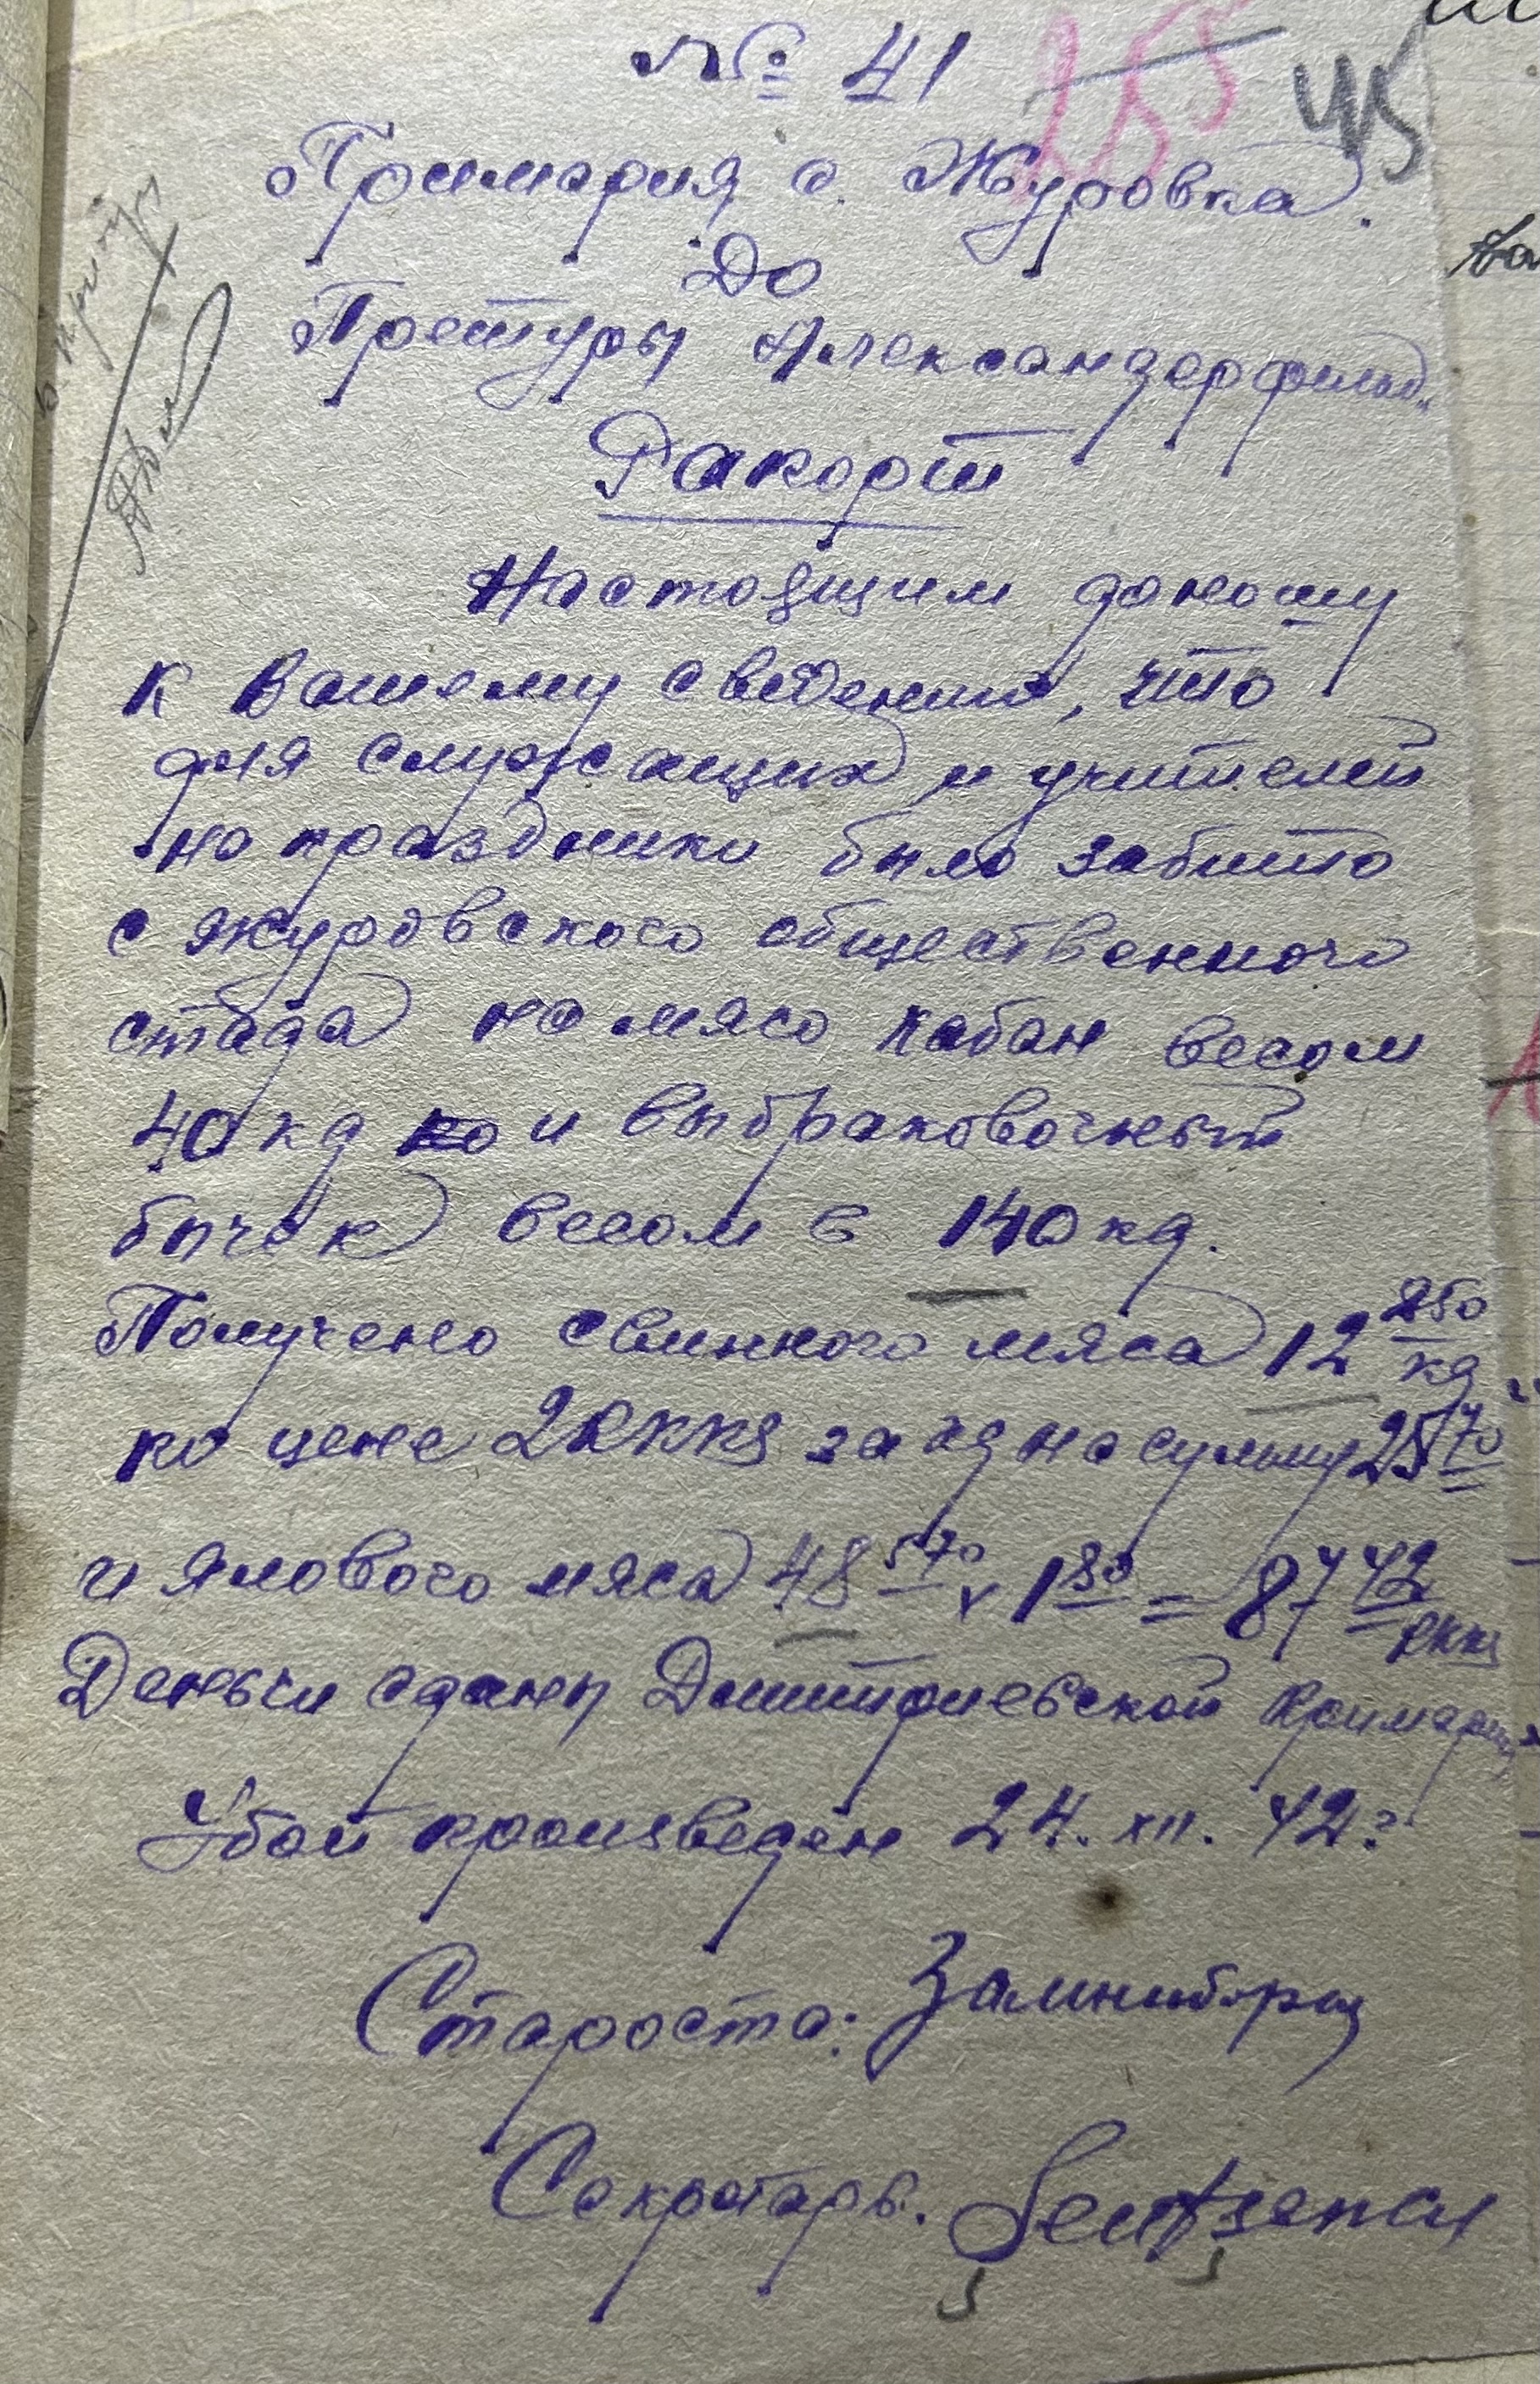 № 41
255 45
Примария с. Журовка.
До
Претуры Александерфельд.
Рапорт
Настоящим доношу
к Вашему сведению, что
для служащих и учителей
на праздники было забито
с журовского общественного
стада на мясо кабан весом
40 кд и выбраковочный
бычек весом в 140 кд.
Получено свинного мяса 12 850 кд
по цене 2 RKKS за кд на сумму 25 70
и ялового мяса 48 570 x 1 80 = 87 42 RKKS
Деньги сданы Дмитриевской Примарии
Убой произведен 24. XII. 42 г.
Староста:
Секретарь.